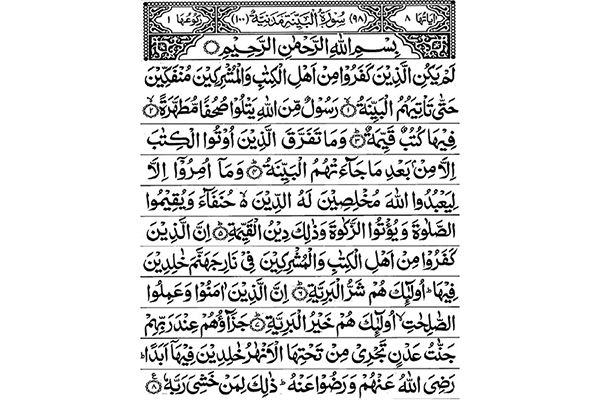 اٰیَاتُهَا ٨ (٩٨) سُوْرَةُ الْبَيِّنَةِ مَدَنِيَّةٌ (١٠٠) رُكُوْعُهَا ١
بِسْمِ اللّٰهِ الرَّحْمٰنِ الرَّحِيْمِ
لَمْ يَكُنِ الَّذِيْنَ كَفَرُوْا مِنْ اَهْلِ الْكِتٰبِ وَالْمُشْرِكِيْنَ مُنْفَكِّيْنَ
حَتّٰى تَاْتِيَهُمُ الْبَيِّنَةُ ۙ﴿١﴾ رَسُوْلٌ مِّنَ اللّٰهِ يَتْلُوْا صُحُفًا مُّطَهَّرَةً ۙ﴿٢﴾
فِيْهَا كُتُبٌ قَيِّمَةٌ ؕ﴿٣﴾ وَمَا تَفَرَّقَ الَّذِيْنَ اُوْتُوا الْكِتٰبَ
اِلَّا مِنْۢ بَعْدِ مَا جَآءَتْهُمُ الْبَيِّنَةُ ؕ﴿٤﴾ وَمَاۤ اُمِرُوْۤا اِلَّا
لِيَعْبُدُوا اللّٰهَ مُخْلِصِيْنَ لَهُ الدِّيْنَ ۙ۬ حُنَفَآءَ وَيُقِيْمُوا
الصَّلٰوةَ وَيُؤْتُوا الزَّكٰوةَ وَذٰلِكَ دِيْنُ الْقَيِّمَةِ ؕ﴿٥﴾ اِنَّ الَّذِيْنَ
كَفَرُوْا مِنْ اَهْلِ الْكِتٰبِ وَالْمُشْرِكِيْنَ فِيْ نَارِ جَهَنَّمَ خٰلِدِيْنَ
فِيْهَا ؕ اُولٰٓئِكَ هُمْ شَرُّ الْبَرِيَّةِ ؕ﴿٦﴾ اِنَّ الَّذِيْنَ اٰمَنُوْا وَعَمِلُوا
الصّٰلِحٰتِ ۙ اُولٰٓئِكَ هُمْ خَيْرُ الْبَرِيَّةِ ؕ﴿٧﴾ جَزَآؤُهُمْ عِنْدَ رَبِّهِمْ
جَنّٰتُ عَدْنٍ تَجْرِيْ مِنْ تَحْتِهَا الْاَنْهٰرُ خٰلِدِيْنَ فِيْهَاۤ اَبَدًا ؕ
رَضِيَ اللّٰهُ عَنْهُمْ وَرَضُوْا عَنْهُ ؕ ذٰلِكَ لِمَنْ خَشِيَ رَبَّهٗ ﴿٨﴾